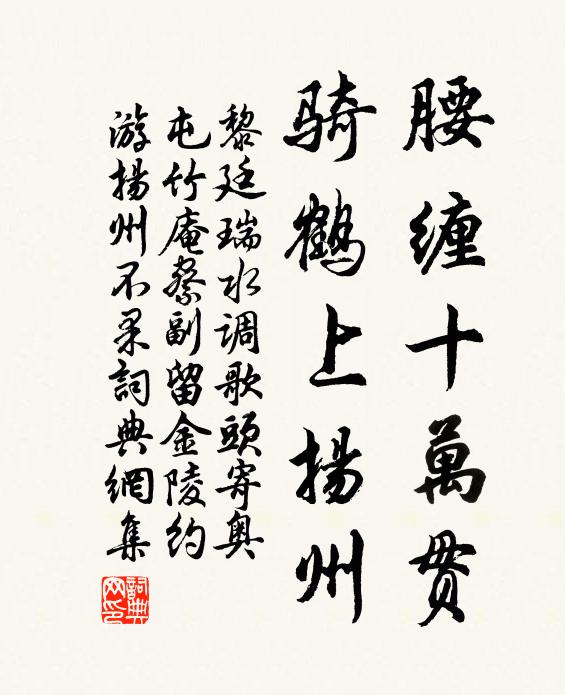 腰纏十萬貫
騎鶴上揚州
黎廷瑞水調歌頭寄奧
屯竹庵察副留金陵約
游揚州不果詞典網集
詞典網印